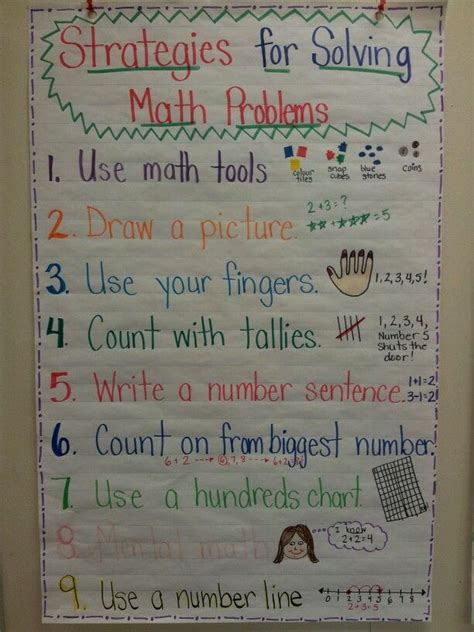 Strategies for Solving
Math Problems
1. Use math tools
colour tiles
snap cubes
blue stones
coins
2. Draw a picture.
2+3=?
=5
3. Use your fingers.
1,2,3,4,5!
4. Count with tallies.
1, 2, 3, 4,
Number 5
Shuts the
door!
5. Write a number sentence.
1+1=2!
3-1=2!
6. Count on from biggest number!
6+2 → 6, 7, 8 → 6+2=8
7. Use a hundreds chart.
8. Mental math
I know
2+2=4
9. Use a number line
0 1 2 3 4 5 6 7 8 9
2+3=5